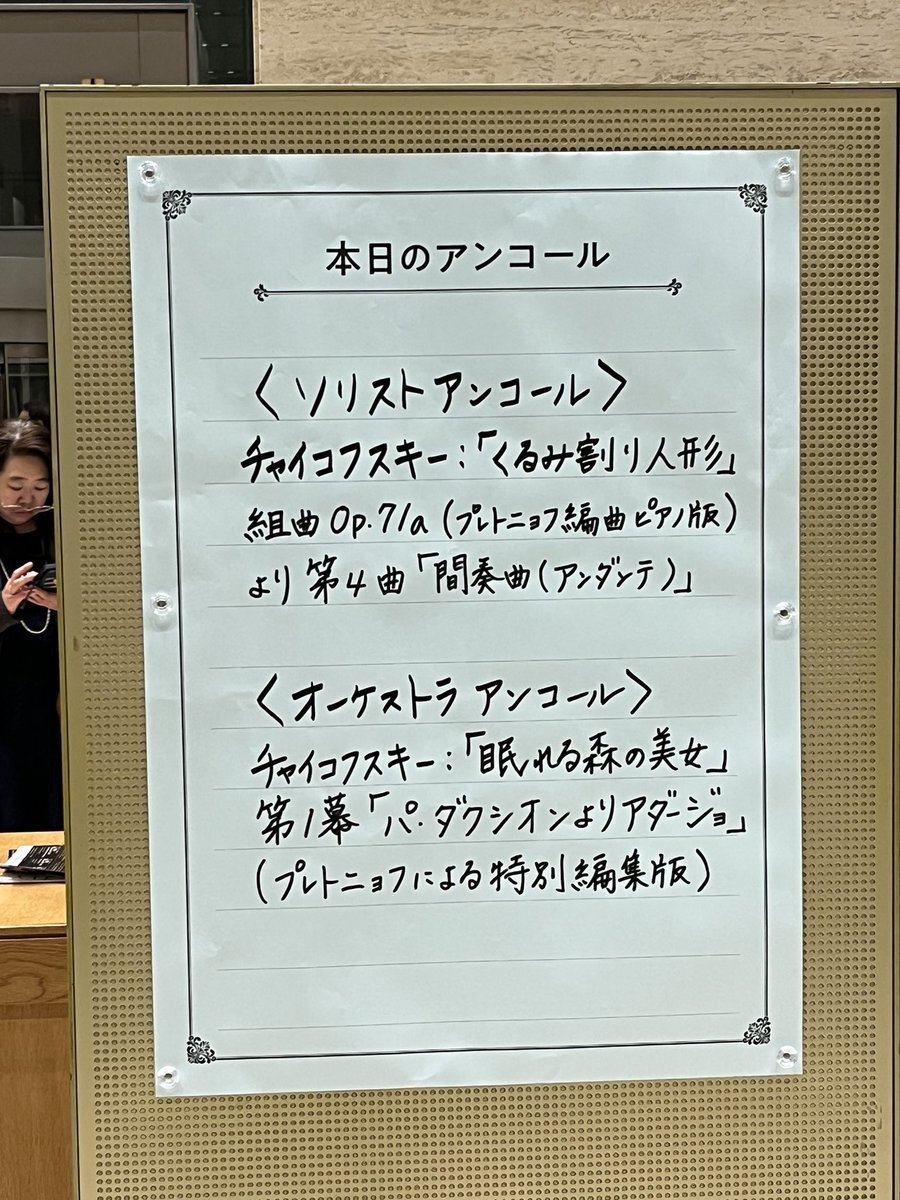 本日のアンコール
〈ソリストアンコール〉
チャイコフスキー：「くるみ割り人形」
組曲Op.71a（プレトニョフ編曲ピアノ版）
より第4曲「間奏曲（アンダンテ）」
〈オーケストラ アンコール〉
チャイコフスキー：「眠れる森の美女」
第1幕「パ・ダクシオンよりアダージョ」
（プレトニョフによる特別編集版）